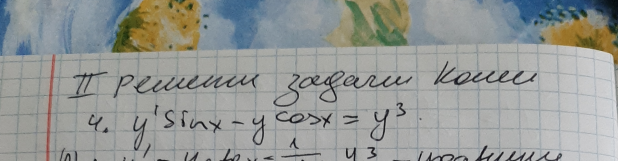 II Решети задачи Коши
4. y' sinx - y cosx = y³.